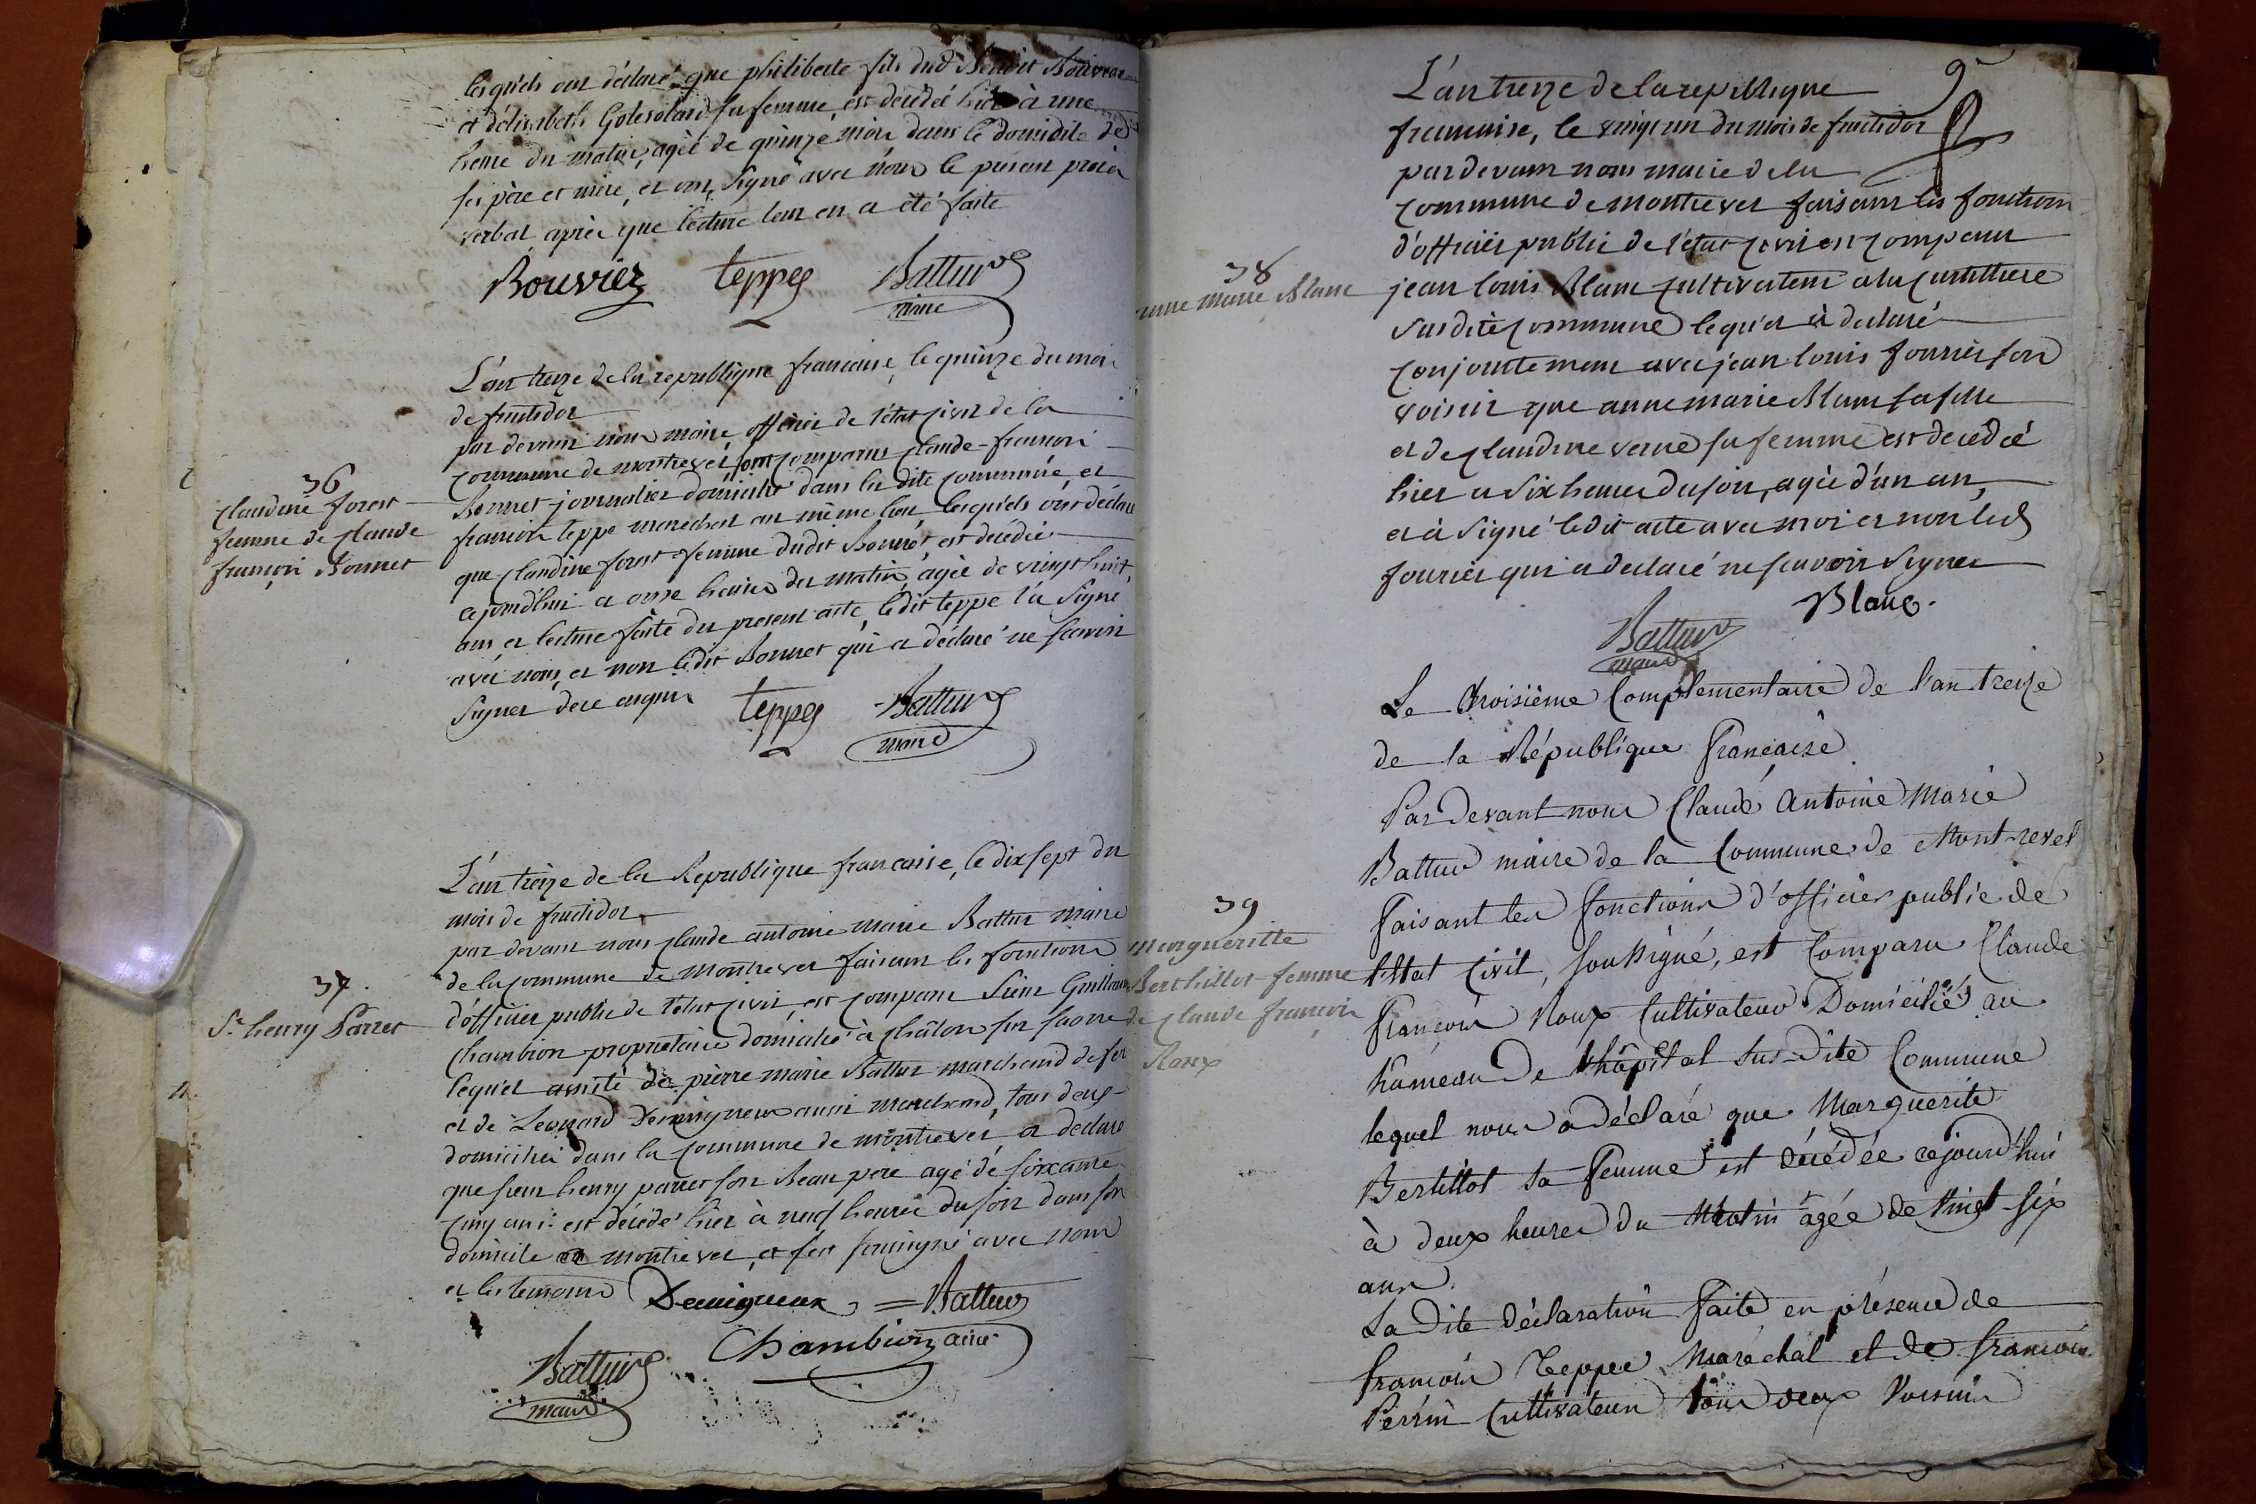 lesquels ont déclaré que philiberte fils dud Benoit Bouvier
et d'élisabeth sa femme, est decédé hier à une
heure du matin, agée de quinze mois dans le domicile de
ses père et mère, et ont signé avec nous le present procés
verbal après que lecture leur en a été faite
Bouvier teppe Battur
maire
L'an treize de la republique francaise, le quinze du moi
de fructidor
par devant nous maire officier de l'état civil de la
commune de montrevel sont comparus claude-francois
Bonnet journalier domicilié dans la dite commune, et
francois teppe marechal au même lieu, lesquels ont déclaré
que claudine forest femme dudit Bonnet est decédée
cejourd'hui a onze heures du matin, agée de vingt huit
ans et lecture faite du present acte, ledit teppe l'a signé
avec nous, et non ledit Bonnet qui a déclaré ne scavoir
signer de ce enquis
teppe Battur
maire
36
claudine forest
femme de claude
françois Bonnet
L'an treize de la Republique francaise, le dix sept du
mois de fructidor
par devant nous claude antoine marie Battur maire
de la commune de montrevel faisant les fonctions
d'officier public de l'état civil, est comparu Sieur Guillaume
Chambion proprietaire domicilié à châlon sur saone
lequel assisté de pierre marie Battur marchand de fer
et de Leonard Demigneux aussi marchand, tous deux
domiciliés dans la commune de montrevel a declaré
que sieur henry parret son Beau pere agé de soixante
cinq ans est décédé hier à neuf heures du soir dans son
domicile a montrevel, et s'est soussigné avec nous
et les temoins
Demigneux Battur
Chambion ainé
Battur
maire
37.
Sr henry Parret
9
L'an treize de la republique
francaise, le vingt un du mois de fructidor
par devant nous maire de la
commune de montrevel faisant les fonctions
d'officier public de l'état civil est comparu
jean louis Blanc cultivateur a la
susdite commune lequel à declaré
conjointement avec jean louis fourrier son
voisin que anne marie Blanc sa fille
et de claudine verne sa femme est decédée
hier a six heures du soir, agée d'un an,
et à signé ledit acte avec moi et non led
fourrier qui a declaré ne scavoir signer
Blanc.
Battur
maire
38
anne marie Blanc
Le troisième complementaire de l'an treize
de la République francaise
Par devant nous Claude Antoine Marie
Battur maire de la Commune de Mont-revel
faisant les fonctions d'officier public de
l'état civil, soussigné, est Comparu Claude
françois Roux Cultivateur Domicilié au
hameau de l'hôpital sus-dite Commune
lequel nous a déclaré que Marguerite
Bertillot sa femme est décédée cejourd'hui
à deux heures du Matin agée de vingt-six
ans.
La Dite déclaration faite en présence de
françois Teppe Maréchal et de françois
Perrin Cultivateur tous deux Voisins
39
marguerite
Berthillot femme
de claude françois
Roux